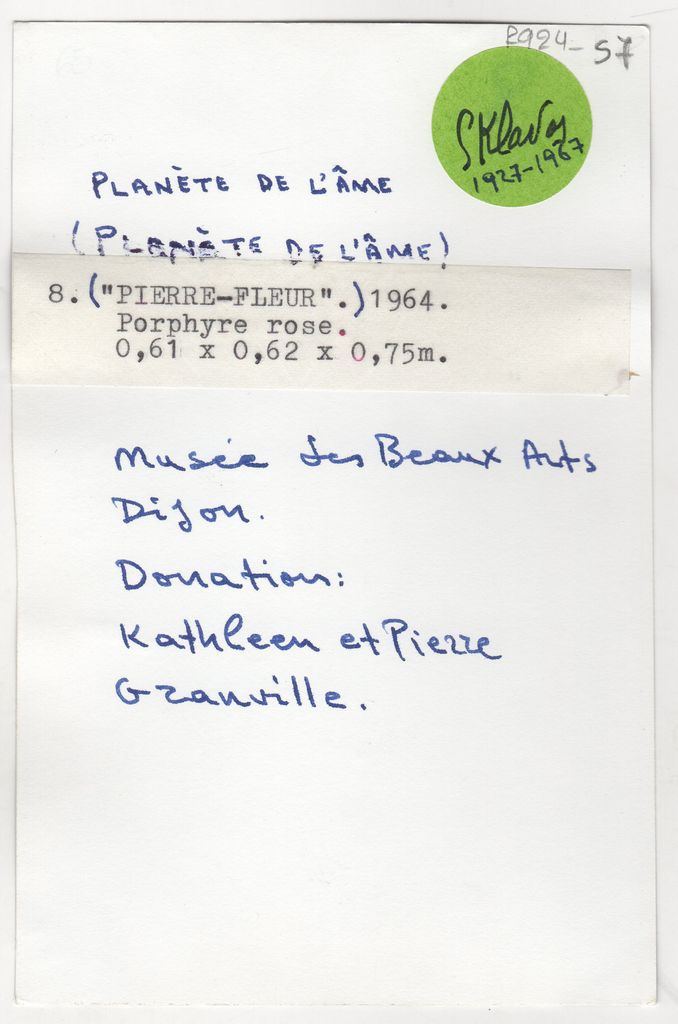 R924-57
SKlavos
1927-1967
PLANÈTE DE L'ÂME
(PLANÈTE DE L'ÂME)
8. ("PIERRE-FLEUR".) 1964.
Porphyre rose.
0,61 x 0,62 x 0,75m.
Musée des Beaux Arts
Dijon.
Donation:
Kathleen et Pierre
Granville.